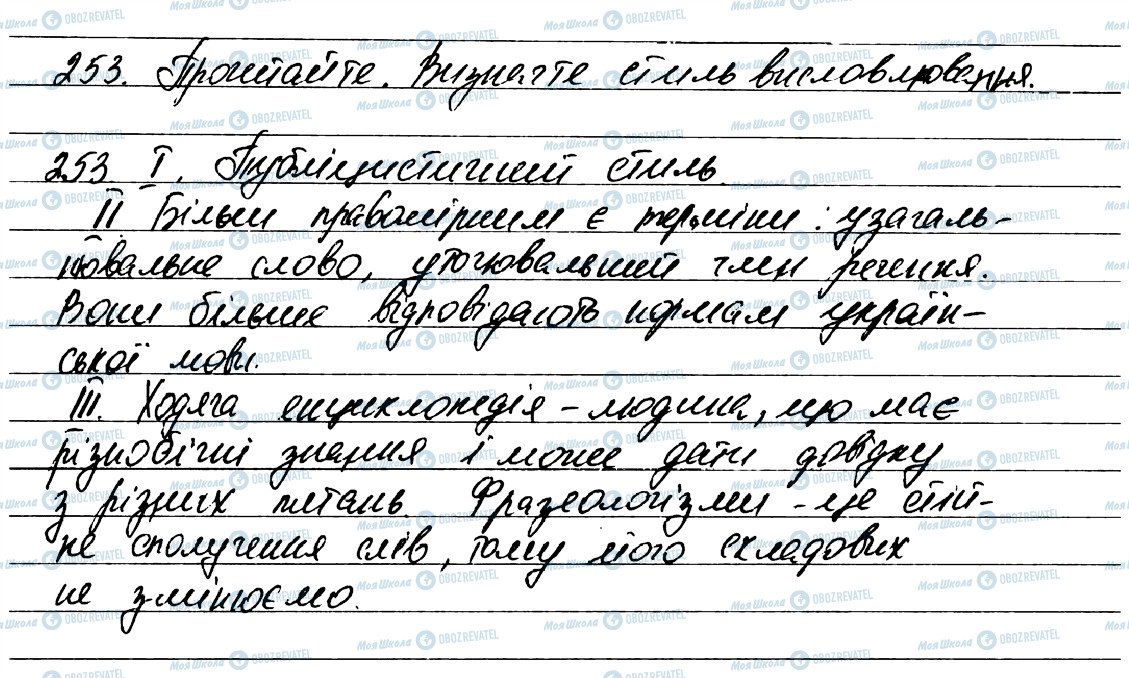 253. Прочитайте. Визначте стиль висловлювання.
253 І. Публіцистичний стиль.
ІІ Більш правомірним є терміни: узагаль-
нювальне слово, уточнювальний член речення.
Вони більше відповідають нормам україн-
ської мови.
ІІІ. Ходяга енциклопедія – людина, що має
різнобічні знання і може дати довідку
з різних питань. Фразеологізми – це стій-
не сполучення слів, тому його складових
не змінюємо.